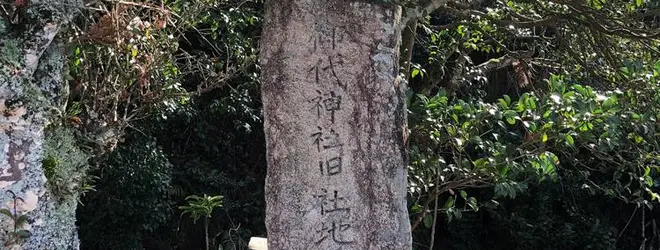 御代神社旧社地